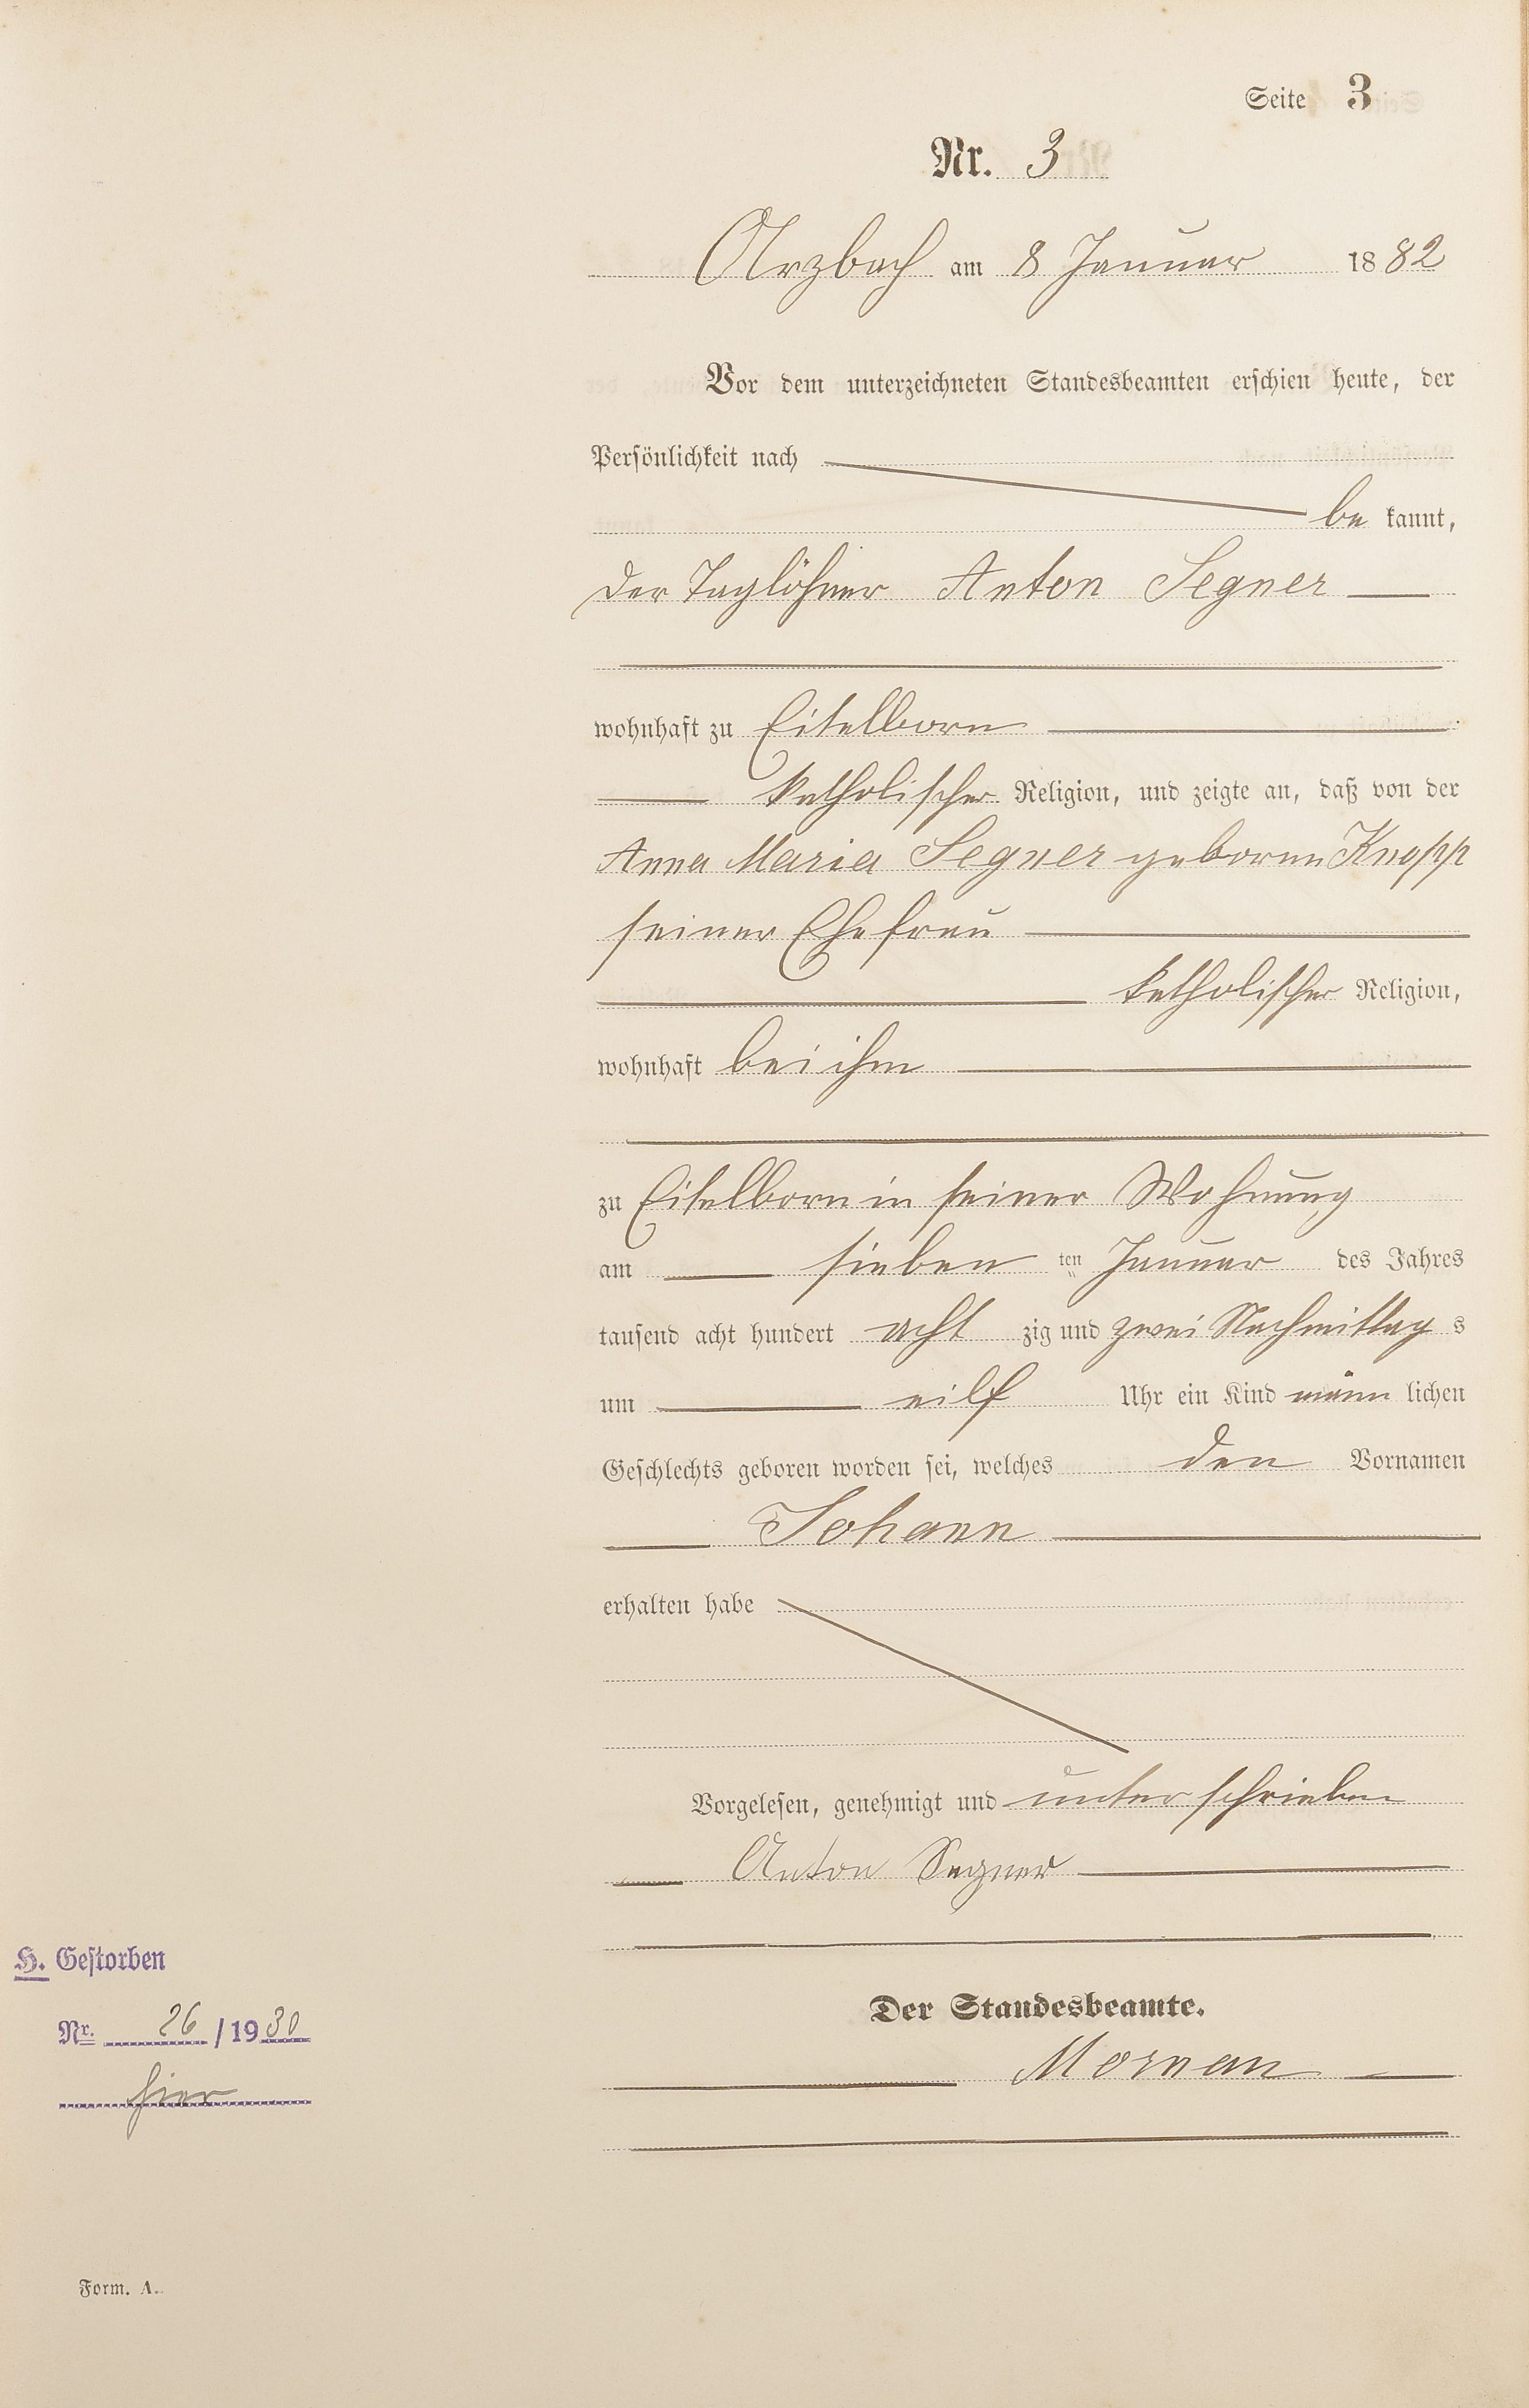 Seite 3
Nr. 3
Arzbach am 8 Januar 1882
Vor dem unterzeichneten Standesbeamten erschien heute, der
Persönlichkeit nach
be kannt,
der Taglöhner Anton Segner
wohnhaft zu Eitelborn
katholischer Religion, und zeigte an, daß von der
Anna Maria Segner geborne Knopp
seiner Ehefrau
katholischer Religion,
wohnhaft bei ihm
zu Eitelborn in seiner Wohnung
am sieben ten Januar des Jahres
tausend acht hundert acht zig und zwei Nachmittag s
um eilf Uhr ein Kind männ lichen
Geschlechts geboren worden sei, welches den Vornamen
Johann
erhalten habe
Vorgelesen, genehmigt und unterschrieben
Anton Segner
H. Gestorben
Nr. 26/1930
hier
Der Standesbeamte.
Mornan
Form. A.